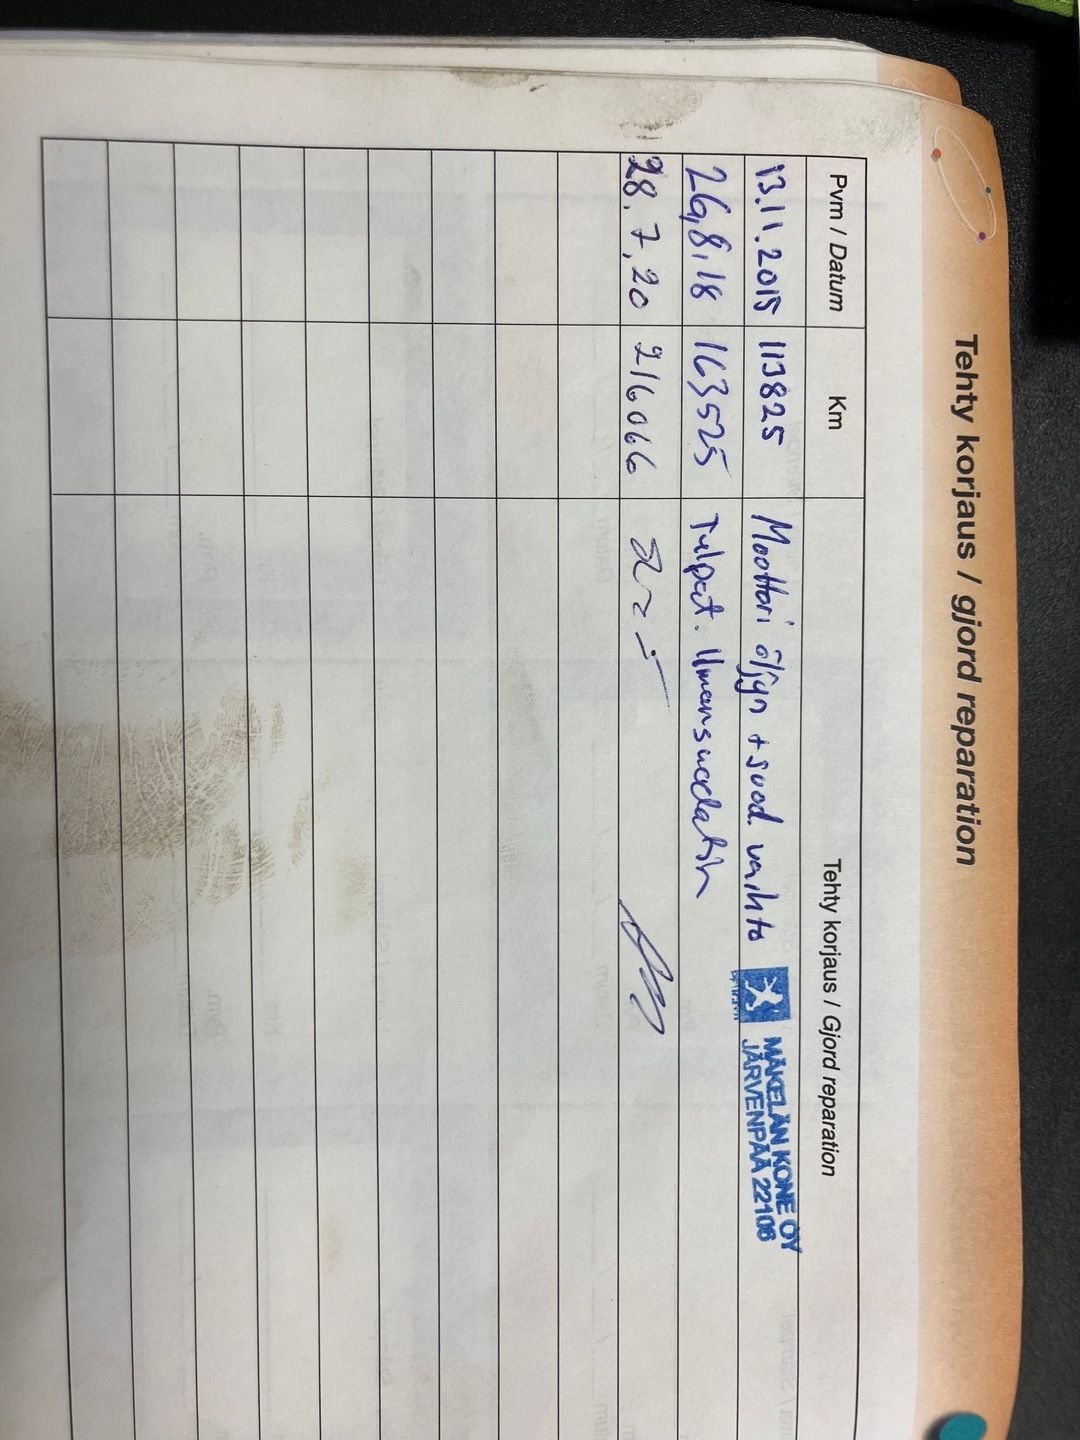 Tehty korjaus / gjord reparation
Pvm / Datum Km Tehty korjaus / Gjord reparation
13.11.2015 113825 Moottori öljyn + suod. vaihto
MÄKELÄN KONE OY
JÄRVENPÄÄ 22106
26,8,18 163525 Tulpat. Ilmansuodatin
28.7.20 216066